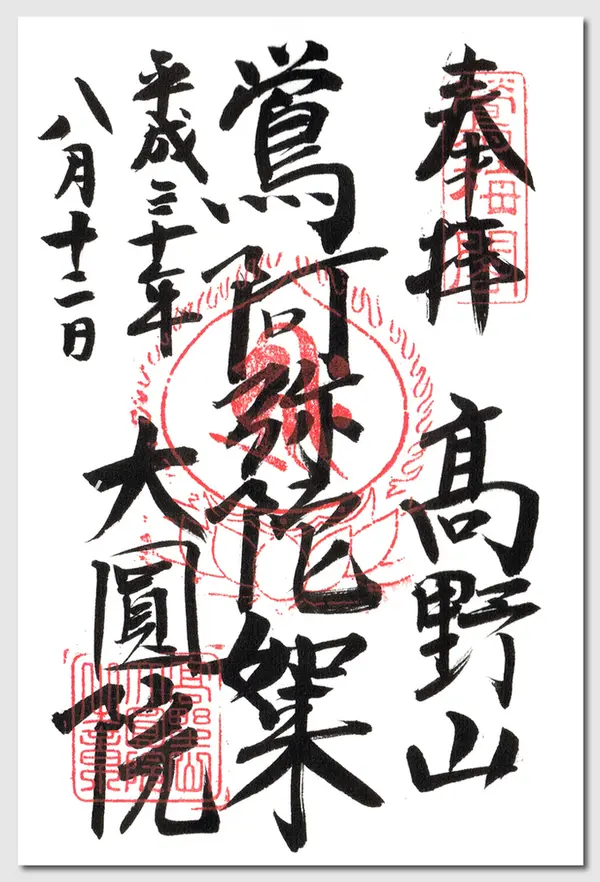 奉拝
高野山
鶯阿弥陀如来
平成三十年
八月十二日
大圓院